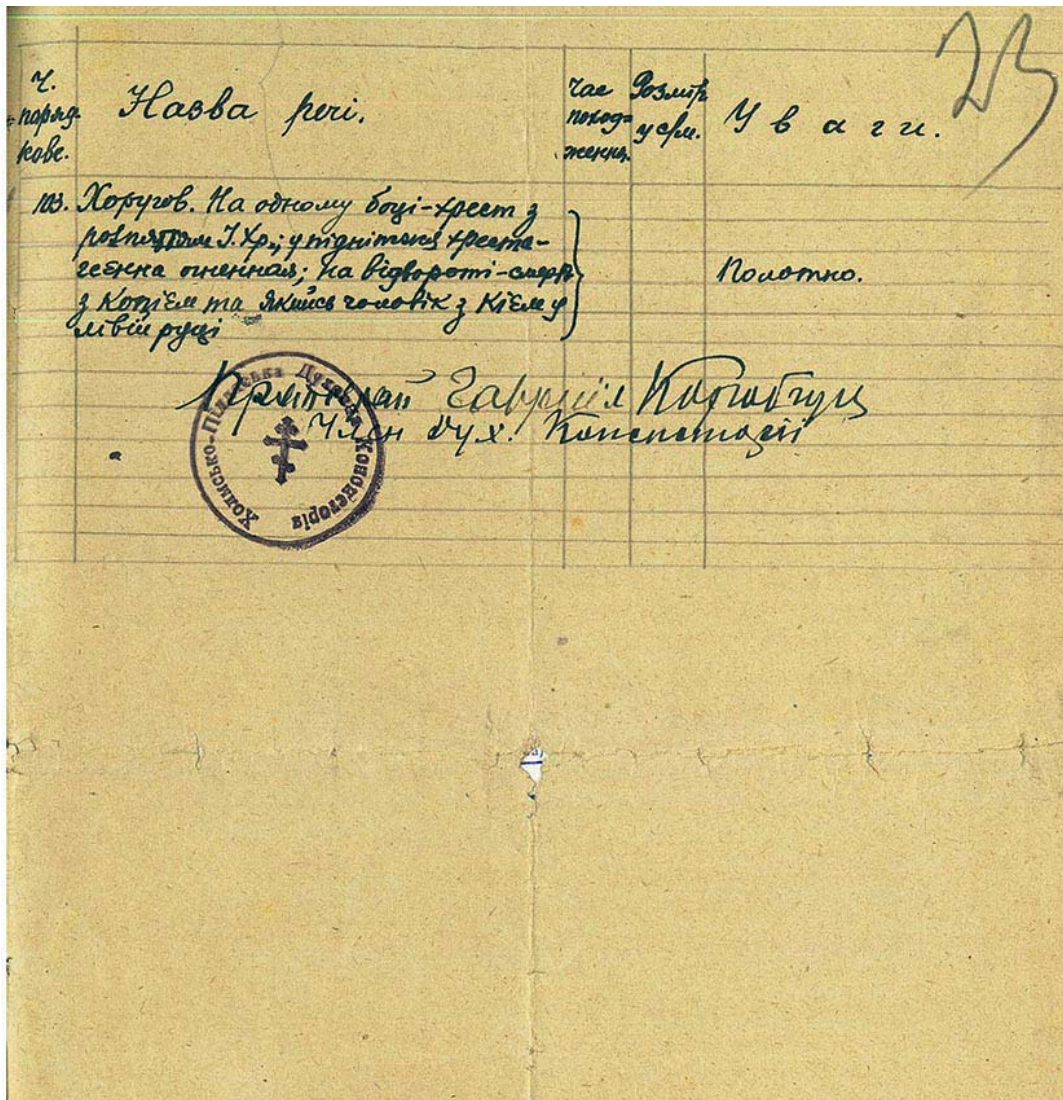 23
Ч. порядкове.
Назва речі.
Час походження.
Розмір у см.
Уваги.
103. Хоругов. На одному боці-хрест з
розпяттям І. Хр.; у підніжжя хреста-
геєнна огненная; на відвороті-смерть
з Копієм та якийсь чоловік з Кієм у
лівій руці
Полотно.
Гавриїл
Член Дух. Консисторії
Холмсько-Підляська Духовна Консисторія